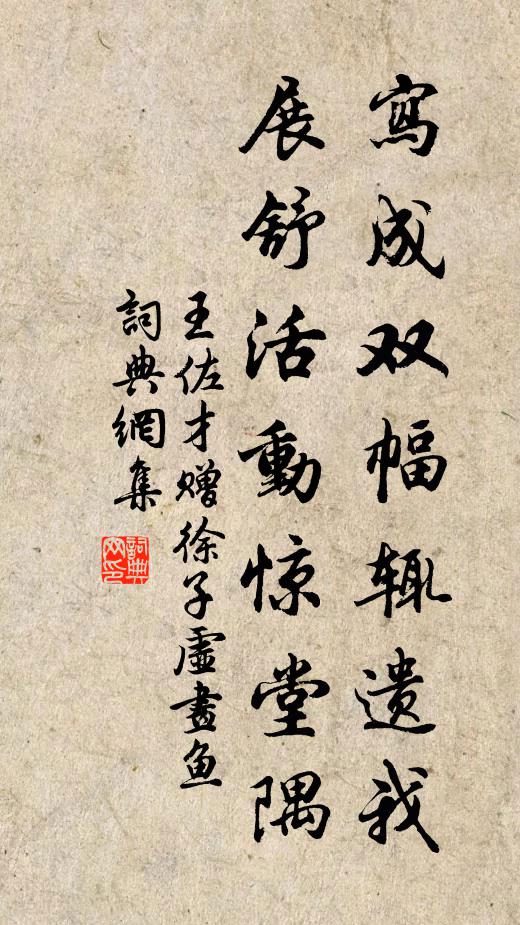 寫成双幅辄遗我
展舒活動惊堂隅
王佐才赠徐子虛畫鱼
詞典網集
詞典网印